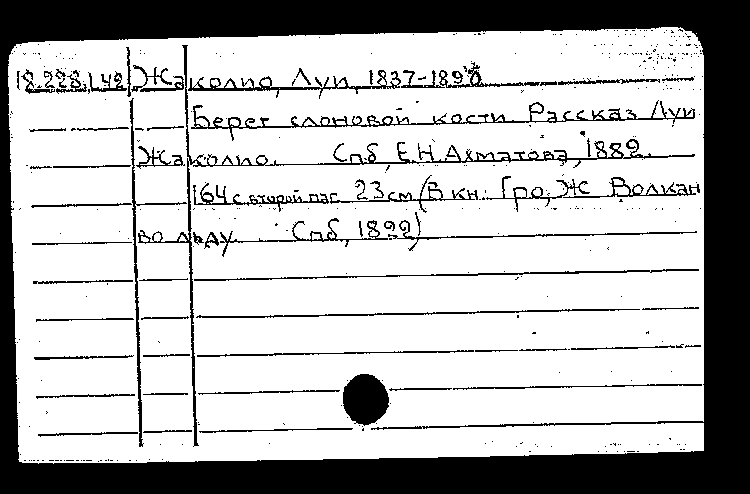 18.228.1.42 Жаколио, Луи, 1837-1890
Берег слоновой кости. Рассказ Луи
Жаколио. Спб, Е.Н. Ахматова, 1882.
164 с. второй паг. 23 см. (В кн.: Гро, Ж Волкан
во льду. Спб, 1892)